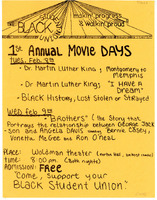 THE BLACK STUDENT UNION
makin' progress
& walkin' proud
1st Annual Movie DAYS
Tues. Feb. 8th
• Dr. Martin Luther King; Montgomery to
Memphis
• Dr. Martin Luther King; "I HAVE
a Dream"
• BLACK History, Lost Stolen or Strayed
Web Feb. 9th
- "Brothers" (The Story that
Portrays the relationship between George Jack
- son and Angela Davis starring Bernie Casey,
Vonetta McGee and Ron O'neal
Place: Woldman theater
time: 8:00 p.m. (Both nights)
Admission: Free
"Come, Support your
BLACK Student Union"